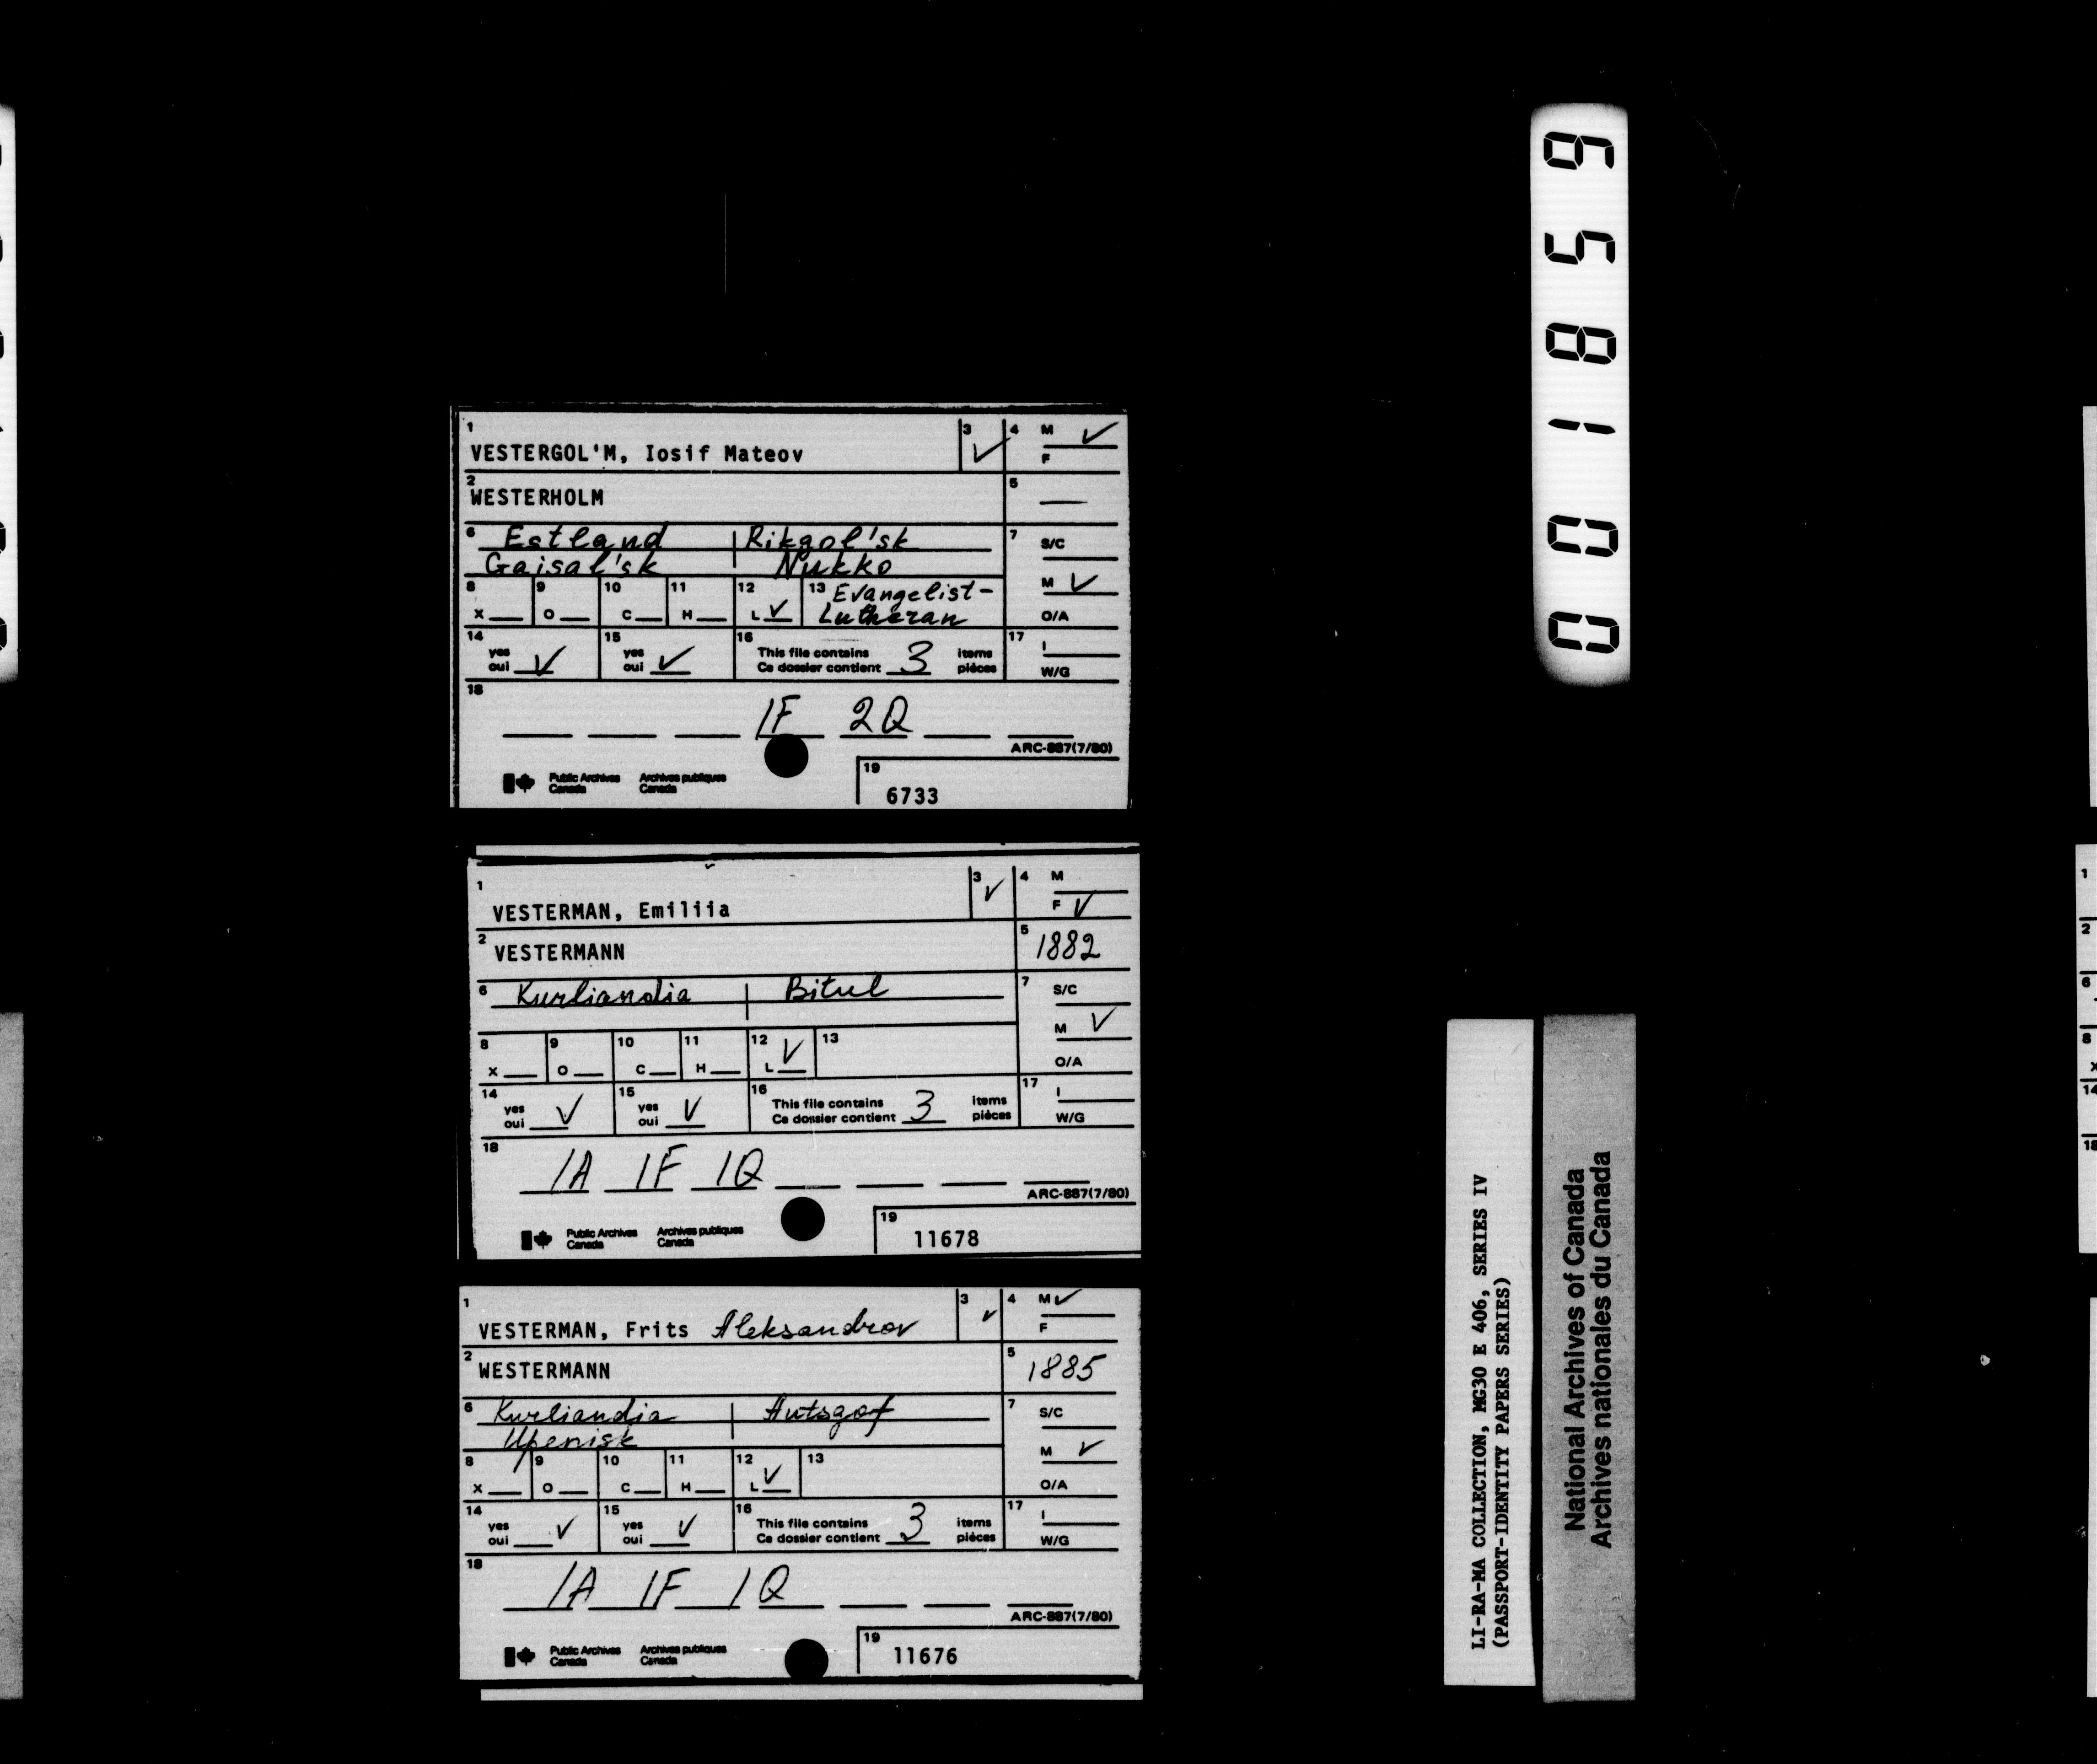 1
3
4 M ✓
VESTERGOL'M, Iosif Mateov
✓
F
2
WESTERHOLM
5 —
6 Estland | Rikgol'sk
Gaisal'sk Nukko
7 S/C
M ✓
O/A
8 X
9 O
10 C
11 H
12 L ✓
13 Evangelist-
Lutheran
14 yes
oui ✓
15 yes
oui ✓
16 This file contains 3 items
Ce dossier contient pièces
17 I
W/G
18
1F 2Q
ARC-887(7/80)
Public Archives Archives publiques
Canada Canada
19
6733
1
3 ✓
4 M
VESTERMAN, Emiliia
F ✓
2
VESTERMANN
5 1882
6 Kurliandia | Bitul
7 S/C
M ✓
O/A
8 X
9 O
10 C
11 H
12 L ✓
13
14 yes
oui ✓
15 yes
oui ✓
16 This file contains 3 items
Ce dossier contient pièces
17 I
W/G
18
1A 1F 1Q
ARC-887(7/80)
Public Archives Archives publiques
Canada Canada
19
11678
1
3 ✓
4 M ✓
VESTERMAN, Frits Aleksandrov
F
2
WESTERMANN
5 1885
6 Kurliandia | Autsgof
Upenisk
7 S/C
M ✓
O/A
8 X
9 O
10 C
11 H
12 L ✓
13
14 yes
oui ✓
15 yes
oui ✓
16 This file contains 3 items
Ce dossier contient pièces
17 I
W/G
18
1A 1F 1Q
ARC-887(7/80)
Public Archives Archives publiques
Canada Canada
19
11676
001859
LI-RA-MA COLLECTION, MG30 E 406, SERIES IV
(PASSPORT-IDENTITY PAPERS SERIES)
National Archives of Canada
Archives nationales du Canada
1
2
6
8
X
14
18